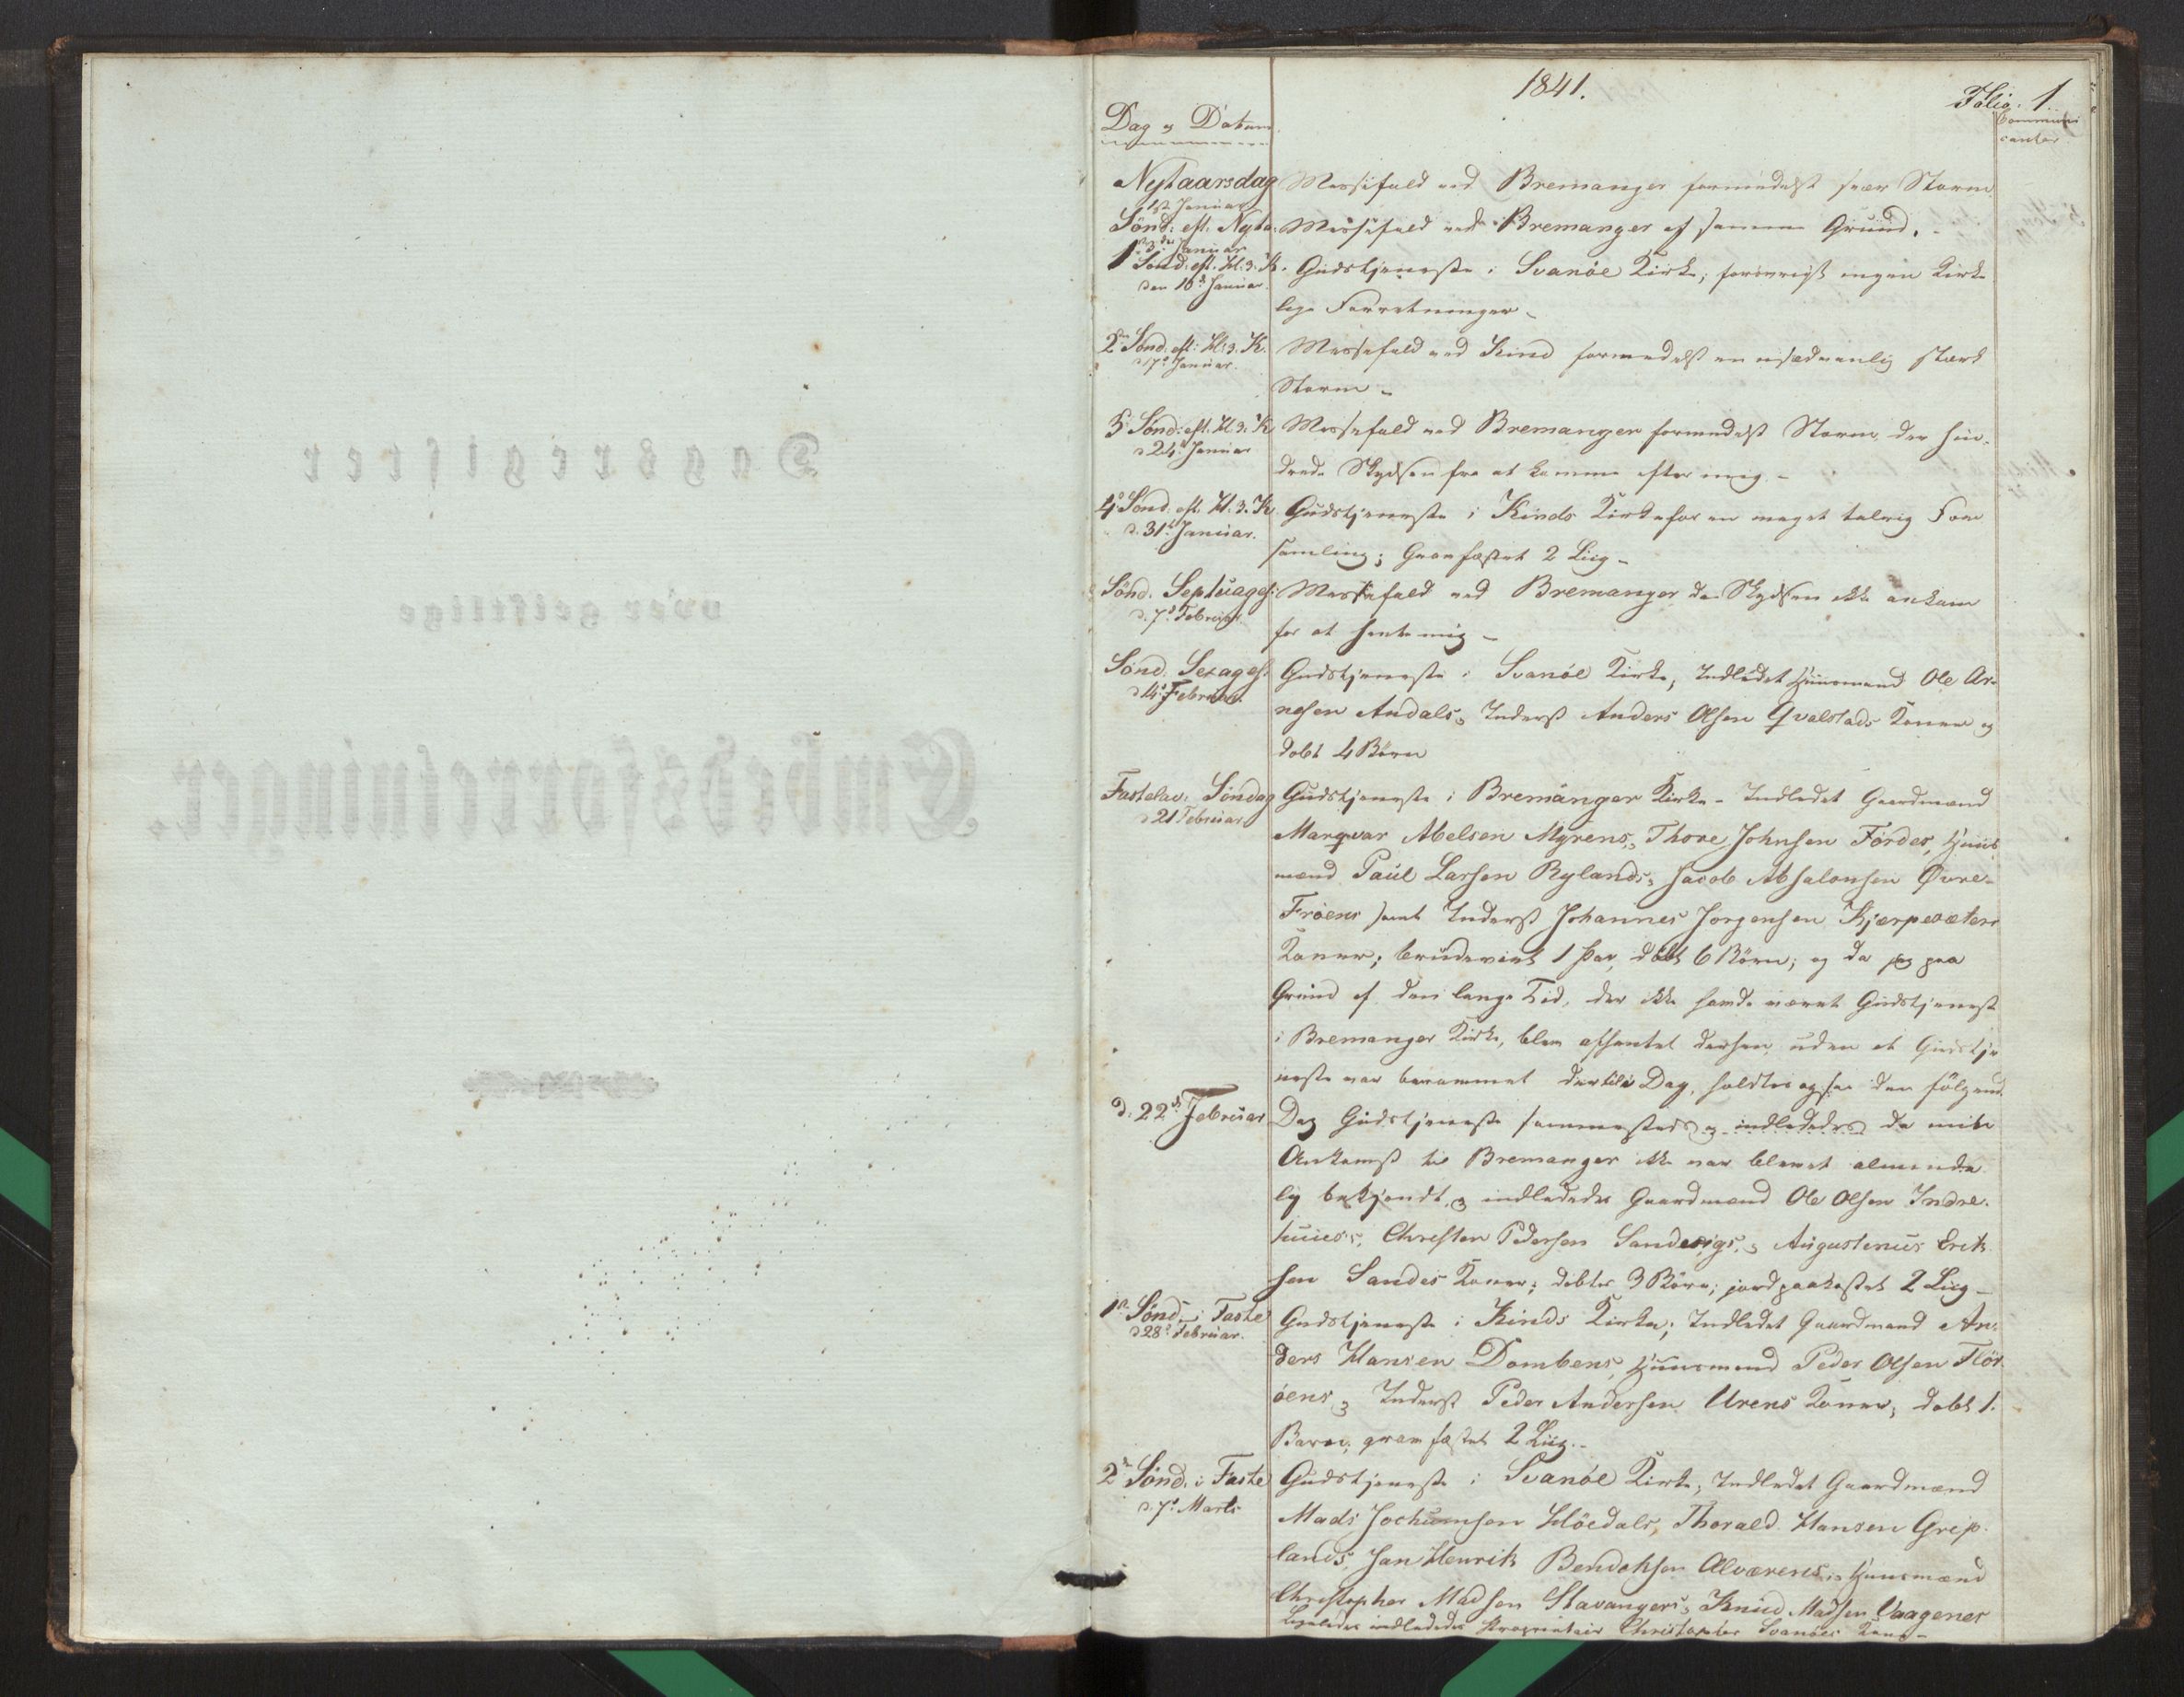 Dagsregister
over geistlige
Embedsforretninger.
1841.
Folio. 1.
Communi
canter
Dag og Datum
Nytaarsdag
1ste Januar
Messefald ved Bremanger formedelst svær Storm
Sönd: eft. Nyta:
d. 3die Januar
Messefald ved Bremanger af samme Grund.
1 Sönd. eft. H. 3. K.
den 10d Januar
Gudstjeneste i Svanöe Kirke; forövrigt ingen Kirke
lige Forretninger -
2den Sönd. eft: Hl: 3. K.
d 17d Januar.
Messefald ved Kind formedelst en usædvanlig stærk
Storm -
3 Sönd: eft. H. 3. K
d 24d Januar
Messefald ved Bremanger formedelst Storm der hin-
drede Skydsen fra at komme efter mig -
4d Sönd. eft. H. 3. K
d. 31d Januar.
Gudstjeneste i Kinds Kirke for en meget talrig For
samling; Gravfæstet 2 Liig -
Sönd. Septuages:
d. 7d Februar
Messefald ved Bremanger da Skydsen ikke ankom
for at hente mig -
Sönd. Sexages:
d 14d Februar.
Gudstjeneste i Svanöe Kirke; Indledet Huusmand Ole Ar-
nesen Andals, Inderst Anders Olsen Qvalstads Koner og
döbt 4 Börn
Fastelav: Söndag
d 21 Februar
Gudstjeneste i Bremanger Kirke - Indledet Gaardmænd
Marqvar Abelsen Myrens, Thore Johnsen Fördes, Huus
mænd Paul Larsen Rylands, Jacob Absalonsen Övre-
Fröens samt Inderst Johannes Jörgensen Kjerpesæters
Koner; brudeviet 1 Par, döbt 6 Börn; og da jeg paa
Grund af den lange Tid, der ikke havde været Gudstjeneste
i Bremanger Kirke, blev afhentet dersen uden at Gudstje
neste var berammet dertil Dag, holdtes ogsaa den fölgende
d. 22d Februar
Dag Gudstjeneste sammesteds og indlededes da min
Ankomst til Bremanger ikke var blevet alminde
lig bekjendt, og indlededes Gaardmænd Ole Olsen Indre-
huus's, Christen Pedersen Sandvigs, Augustinus Erik
sen Sandes Koner; döbtes 3 Börn; jordpaakastet 2 Liig -
1ste Sönd. i Faste
d 28d Februar.
Gudstjeneste i Kinds Kirke; Indledet Gaardmand An-
ders Hansen Dombens, Huusmand Peder Olsen Flor
öens, Inderst Peder Andersen Urens Koner; döbt 1.
Barn; gravfæstet 2 Liig.-
2d Sönd. i Faste
d. 7d Marts
Gudstjeneste i Svanöe Kirke, Indledet Gaardmænd
Mads Jochumsen Höedals, Thorald Hansen Grep-
lands, Jan Henrik Bendiksen Alværens, Huusmænd
Christopher Madsen Stavangers, Knud Madsen Vaagenes
Ligeledes indlededes Proprietair Christopher Svanöes Kone -